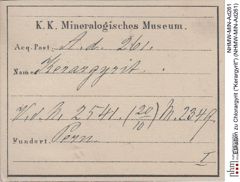 K. K. Mineralogisches Museum.
Acq. Post: A. d. 261.
Name: Kerargyrit.
V. d. N. 2541. (20/10) M. 2349.
Fundort: Peru
I
NHMW-MIN-Ad261
Etiketten zu Chlorargyrit ("Kerargyrit") (NHMW-MIN-Ad261)
nhm